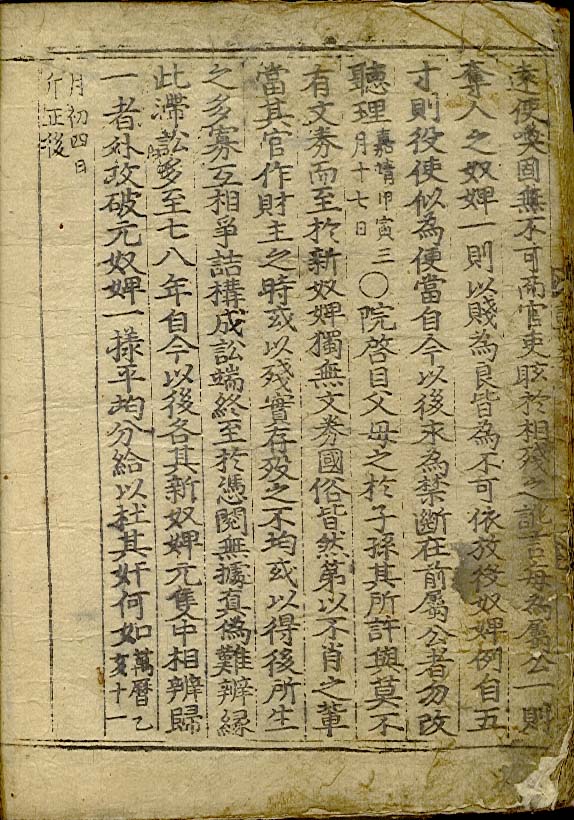 使奐固無不可而官吏眩於相殘之訛言毋為屬公一則
奪人之奴婢一則以賤為良皆為不可依放役奴婢例自五
寸則役使似為便當自今以後永為禁斷在前屬公者勿改
聽理嘉靖甲寅三月十七日〇院啓目父母之於子孫其所許與莫不
有文券而至於新奴婢獨無文券國俗皆然第以不肖之輩
當其官作財主之時或以殘實存歿之不均或以得後所生
之多寡互相爭詰構成訟端終至於憑閱無據眞偽難辨緣
此滯訟多至七八年自今以後各其新奴婢元隻中相辨歸
一者外改破元奴婢一樣平均分給以杜其奸何如萬曆乙亥十一
月初四日
正後